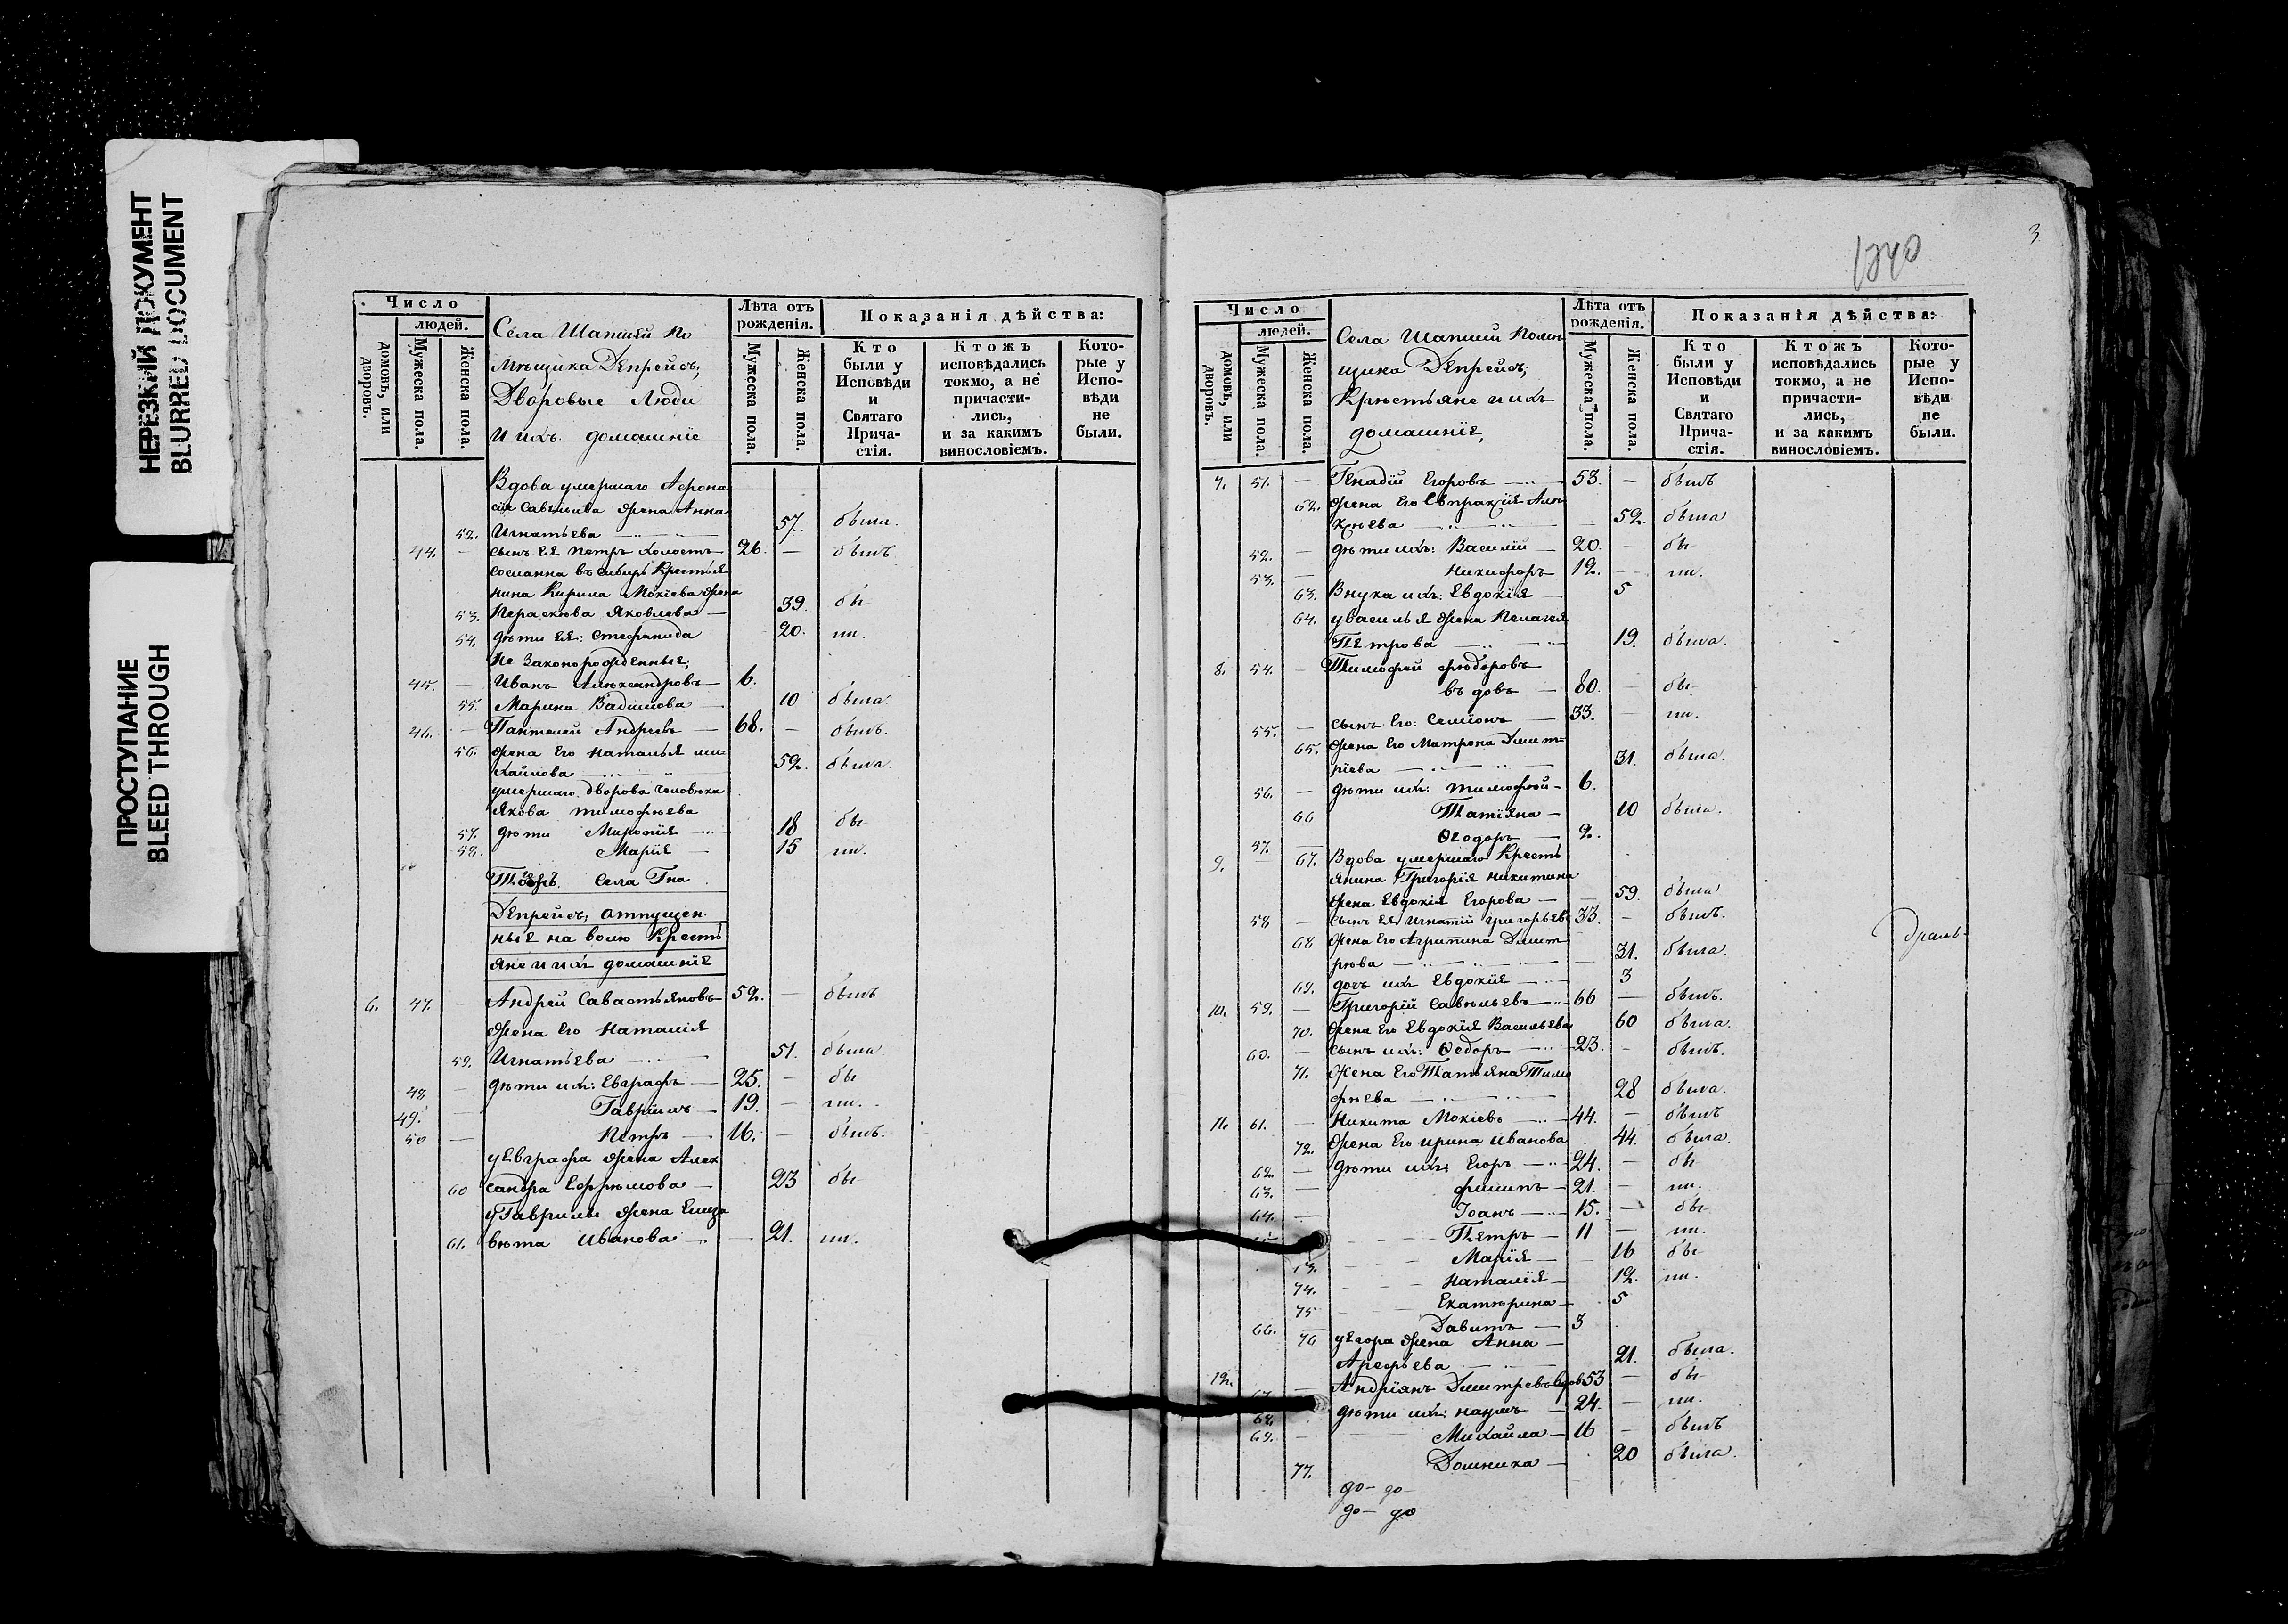 НЕРЕЗКИЙ ДОКУМЕНТ
BLURRED DOCUMENT
ПРОСТУПАНИЕ
BLEED THROUGH
Число
людей.
домовъ, или дворовъ.
Мужеска пола.
Женска пола.
Села Шапшей По
мѣщика Депрейсъ,
Дворовые люди
и ихъ домашніе
Лѣта отъ рожденія.
Мужеска пола.
Женска пола.
Показанія дѣйства:
Кто были у Исповѣди и Святаго Прича-стія.
Ктожъ исповѣдались токмо, а не причасти-лись, и за какимъ винословіемъ.
Кото-рые у Испо-вѣди не были.
Вдова умершаго Афона
сія Савельива жена Анна
52. Игнатьева 57. была.
44. — сынъ ея Петръ холостъ 26. — былъ
сосланна въ сибирь Крестья
нина Кирила Мокіева жена
53. Параскева Яковлева — 39. бы
54. дѣти ея: Стефанида 20. ли.
Не Законорожденные,
45. — Иванъ Александровъ — 6.
55. Марина Вадимова — 10 была.
46. — Пантелей Андреевъ — 68. — былъ.
56. жена Его Наталья ми=
хайлова 59. была.
умершаго дворова человѣка
Якова тимофеева
57. дѣти Миропія 18 бы
58. Марія — 15 ли.
Тогожъ Села Гна
Депрейсъ, отпущен.
ные на волю Кресть
яне и ихъ домашніе
6. 47. — Андрей Савастьяновъ 59. — былъ
жена Его Наталія
59. Игнатьева 51. была
48 — дѣти ихъ: Евграфъ — 25. — бы
49. — Гавріилъ — 19. — ли.
50 — Петръ — 16. — былъ.
у Евграфа жена Алек
60 сандра Ефремова — 23 бы
у Гаврилы жена Елиза
61. вета Иванова — 21. ли.
1240
3
Число
людей.
домовъ, или дворовъ.
Мужеска пола.
Женска пола.
Села Шапшей Помѣ
щика Депрейсъ,
Крестьяне и ихъ
домашніе,
Лѣта отъ рожденія.
Мужеска пола.
Женска пола.
Показанія дѣйства:
Кто были у Исповѣди и Святаго Прича-стія.
Ктожъ исповѣдались токмо, а не причасти-лись, и за какимъ винословіемъ.
Кото-рые у Испо-вѣди не были.
7. 51. — Генадій Егоровъ 53. — былъ
62. жена Его Евпраксія Але
ксѣева 52. была
52. — дѣти ихъ: Василій — 20. — бы
53. — Никифоръ — 19. — ли.
63. Внука ихъ: Евдокія — 5
64. у василья жена Пелагея
Петрова 19. была.
8. 54. — Тимофей Фѣдоровъ
въдовъ — 80. — бы
55. — сынъ Его: Семіонъ — 33. — ли.
65. жена Его Матрона Дмит=
ріева 31. была.
56. — дѣти ихъ: тимофей — 6.
66 Татіяна — 10 была.
57. — Ѳеодоръ — 2.
9. — 67. Вдова умершаго Кресть
янина Григорія никитина
жена Евдокія Егорова — 59. была
58 — сынъ ея Игнатій Григорьевъ 33. — былъ.
68 жена Его Агрипина Дмит
рева 31. была.
69. дочь ихъ Евдокія 3
10. 59. — Григорій Савельевъ 66 — былъ.
70. жена Его Евдокія Васильева 60 была.
60. — сынъ ихъ: Ѳедоръ 23. — былъ.
71. Жена Его Татьяна Тимо
феева 28 была.
11. 61. — Никита Мокіевъ 44. — былъ
72. жена Его ирина Иванова 44. была.
62. — дѣти ихъ: Егоръ 24. — бы
63. — филипъ — 21. — ли.
64. — Іоанъ 15. — бы
Петръ — 11 — ли.
73. Марія — 16 бы
74. Наталія — 12. ли.
75 Екатерина — 5
66. — Давитъ — 3
76 у Егора жена Анна —
Арефьева 21. была.
12. — Андріянъ Дмитревъ вдов 53 — бы
68. дѣти ихъ: наумъ — 24. — ли.
69. — Михайла — 16 — былъ
77. Домника — 20 была.
до — до —
до — до